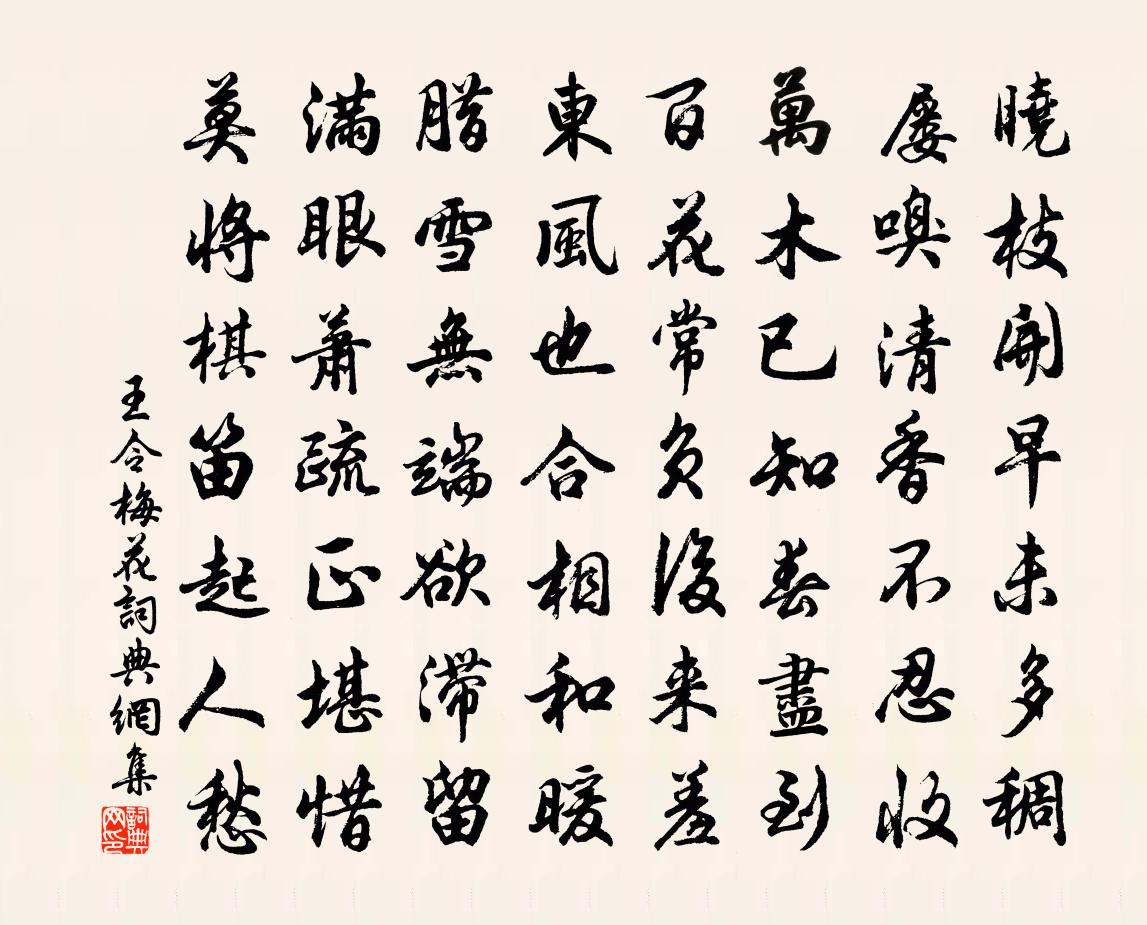 曉枝開早未多稠
屢嗅清香不忍收
萬木已知春盡到
百花常負後来羞
東風也合相和暖
腊雪無端欲滞留
滿眼蕭疏正堪惜
莫將棋笛起人愁
王令梅花詞典網集
詞典网印